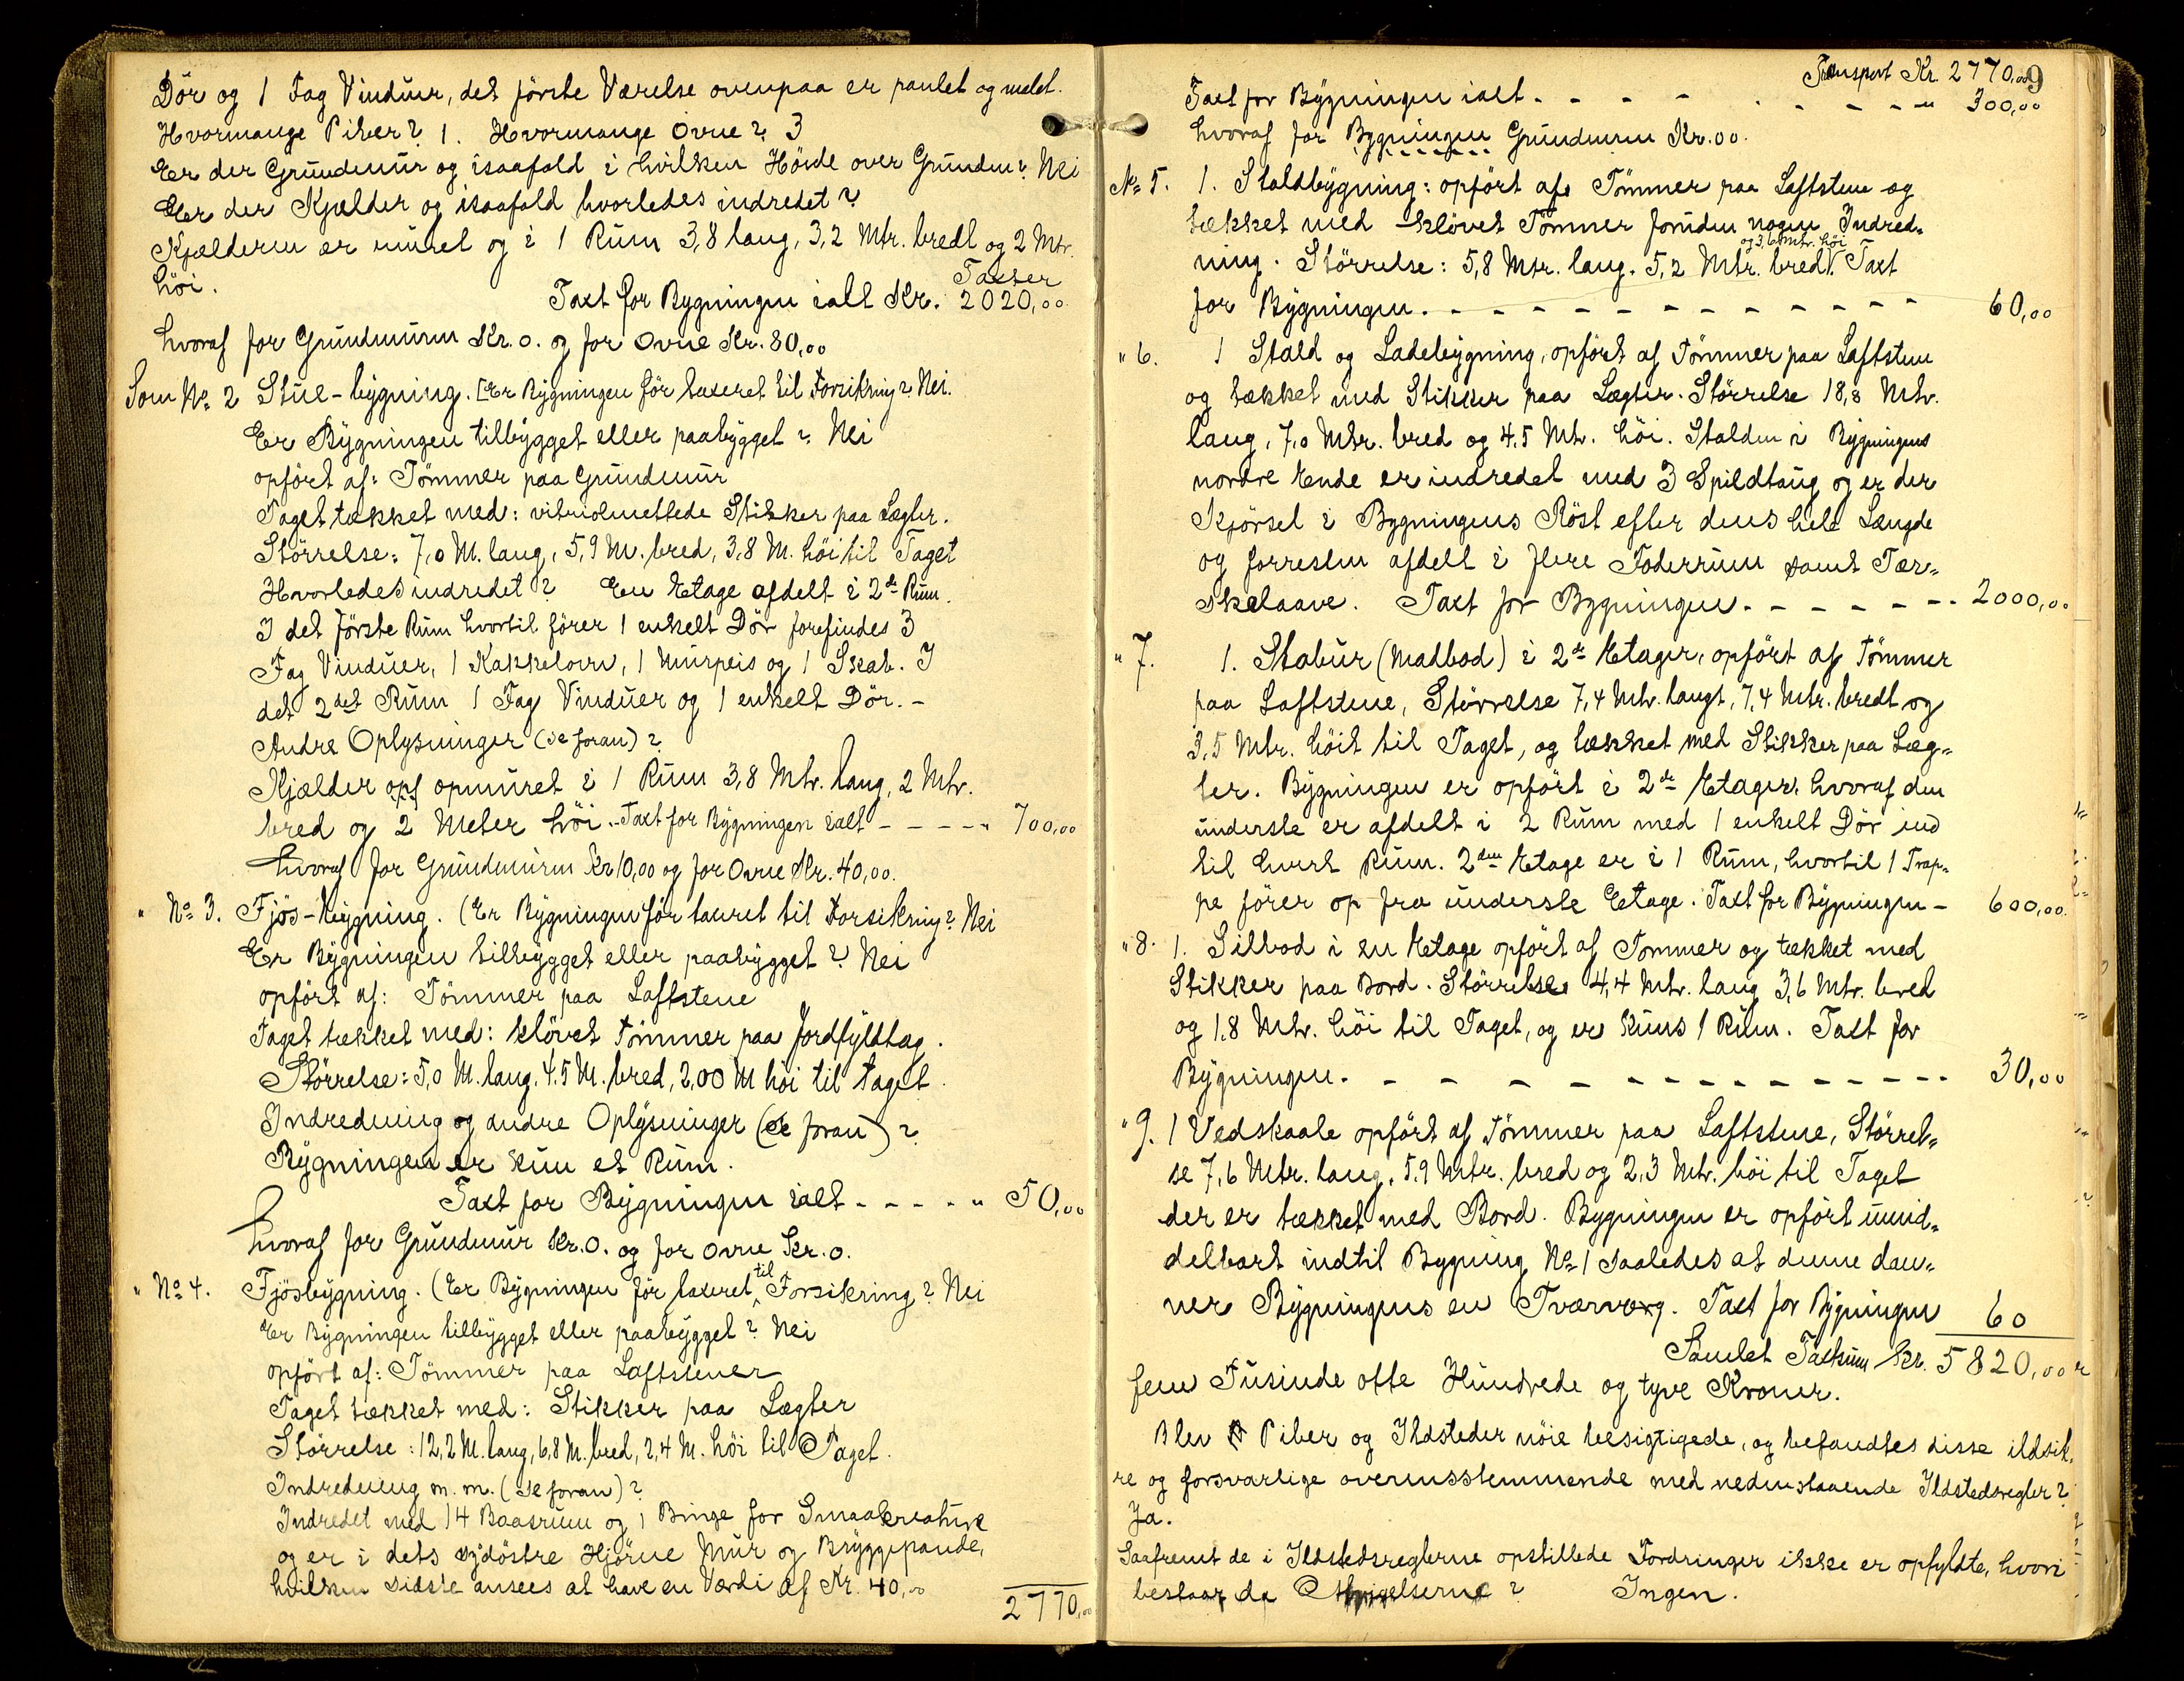 Dör og 1 Fag Vinduer, det förste Værelse ovenpaa er panlet og malet.
Hvormange Piber? 1. Hvormange Ovne? 3
Er der Grundmur og isaafald i hvilken Höide over Grunden? Nei
Er der Kjælder og isaafald hvorledes indredet?
Kjælderen er muret og i 1 Rum 3,8 lang, 3,2 Mtr. bredt og 2 Mtr.
höi.
Taxter
Taxt for Bygningen ialt Kr. 2020,00
hvoraf for Grundmuren Kr. 0. og for Ovne Kr. 80,00
Som No 2 Stue-bygning. [Er Bygningen för taxeret til Forsikring? Nei.
Er Bygningen tilbygget eller paabygget? Nei
opfört af: Tömmer paa Grundmur
Taget tækket med: vitriolmettede Stikker paa Lægter.
Störrelse: 7,0 M. lang, 5,9 M. bred, 3,8 M. höi til Taget
Hvorledes indredet? En Etage afdelt i 2de Rum.
I det förste Rum hvortil förer 1 enkelt Dör forefindes 3
Fag Vinduer, 1 Kakkelovn, 1 Murpeis og 1 Skab. I
det 2det Rum 1 Fag Vinduer og 1 enkelt Dör. -
Andre Oplysninger (se foran)?
Kjælder opf opmuret i 1 Rum 3,8 Mtr. lang, 2 Mtr.
bred og 2 Meter höi. - Taxt for Bygningen ialt - - - - " 700,00
hvoraf for Grundmuren Kr 10,00 og for Ovne Kr. 40,00.
" No 3. Fjös-bygning. (Er Bygningen för taxeret til Forsikring? Nei
Er Bygningen tilbygget eller paabygget? Nei
opfört af: Tömmer paa Laftstene
Taget tækket med: klövet Tömmer paa Jordfyldtag.
Störrelse: 5,0 M. lang, 4.5 M. bred, 2,00 M höi til taget.
Indredning og andre Oplysninger (se foran)?
Bygningen er kun et Rum.
Taxt for Bygningen ialt - - - - " 50,00
hvoraf for Grundmur Kr. 0. og for Ovne Kr. 0.
" No 4. Fjösbygning. (Er Bygningen för taxeret til Forsikring? Nei
Er Bygningen tilbygget eller paabygget? Nei
opfört af: Tömmer paa Laftstener
Taget tækket med: Stikker paa Lægter
Störrelse: 12,2 M. lang, 6,8 M. bred, 2,4 M. höi til Taget.
Indredning m. m. (se foran)?
Indredet med 14 Baasrum og 1 Binge for Smaakreature
og er i dets sydöstre Hjörne Mur og Bryggepande,
hvilken sidste ansees at have en Værdi af Kr. 40,00
2770,00
Transport Kr. 2770,00 9
Taxt for Bygningen ialt - - - - - - - - " 300,00
hvoraf for Bygningen Grundmuren Kr. 00.
No 5. 1. Staldbygning: opfört af Tömmer paa Laftstene og
tækket med klövet Tömmer foruden nogen Indred=
og 3,6 Mtr. höi
ning. Störrelse: 5,8 Mtr. lang. 5,2 Mtr. bred. Taxt
for Bygningen. - - - - - - - - - - - - 60,00
" 6. 1 Stald og Ladebygning, opfört af Tömmer paa Laftstene
og tækket med Stikker paa Lægter. Störrelse 18,8 Mtr.
lang, 7,0 Mtr. bred og 4,5 Mtr. höi. Stalden i Bygningens
nordre Ende er indredet med 3 Spildtaug og er der
Kjörsel i Bygningens Röst efter dens hele Længde
og forresten afdelt i flere Foderrum samt Tær=
skelaave. Taxt for Bygningen. - - - - - - 2000,00
" 7. 1. Stabur (Madbod) i 2de Etager, opfört af Tömmer
paa Laftstene, Störrelse 7,4 Mtr. langt, 7,4 Mtr. bredt og
3,5 Mtr. höit til Taget, og tækket med Stikker paa Læg=
ter. Bygningen er opfört i 2de Etager, hvoraf den
underste er afdelt i 2 Rum med 1 enkelt Dör ind
til hvert Rum. 2den Etage er i 1 Rum, hvortil 1 Trap=
pe förer op fra underste Etage. Taxt for Bygningen - 600,00.
" 8. 1. Silbod i en Etage opfört af Tömmer og tækket med
Stikker paa Bord. Störrelse 4,4 Mtr. lang 3,6 Mtr. bred
og 1,8 Mtr. höi til Taget, og er kuns 1 Rum. Taxt for
Bygningen. - - - - - - - - - - - - - 30,00
" 9. 1 Vedskaale opfört af Tömmer paa Laftstene, Störrel=
se 7,6 Mtr. lang, 5,9 Mtr. bred og 2,3 Mtr. höi til Taget
der er tækket med Bord. Bygningen er opfört umid=
delbart indtil Bygning No 1 saaledes at denne dan=
ner Bygningens en Tværvæg. Taxt for Bygningen 60
Samlet Taxtsum Kr. 5820,00
fem Tusinde otte Hundrede og tyve Kroner.
Blev Piber og Ildsteder nöie besigtigede, og befandtes disse ildsik=
re og forsvarlige overensstemmende med nedenstaaende Ildstedsregler?
Ja.
Saafremt de i Ildstedsreglerne opstillede Fordringer ikke er opfyldte, hvori
bestaar da Afvigelserne? Ingen.